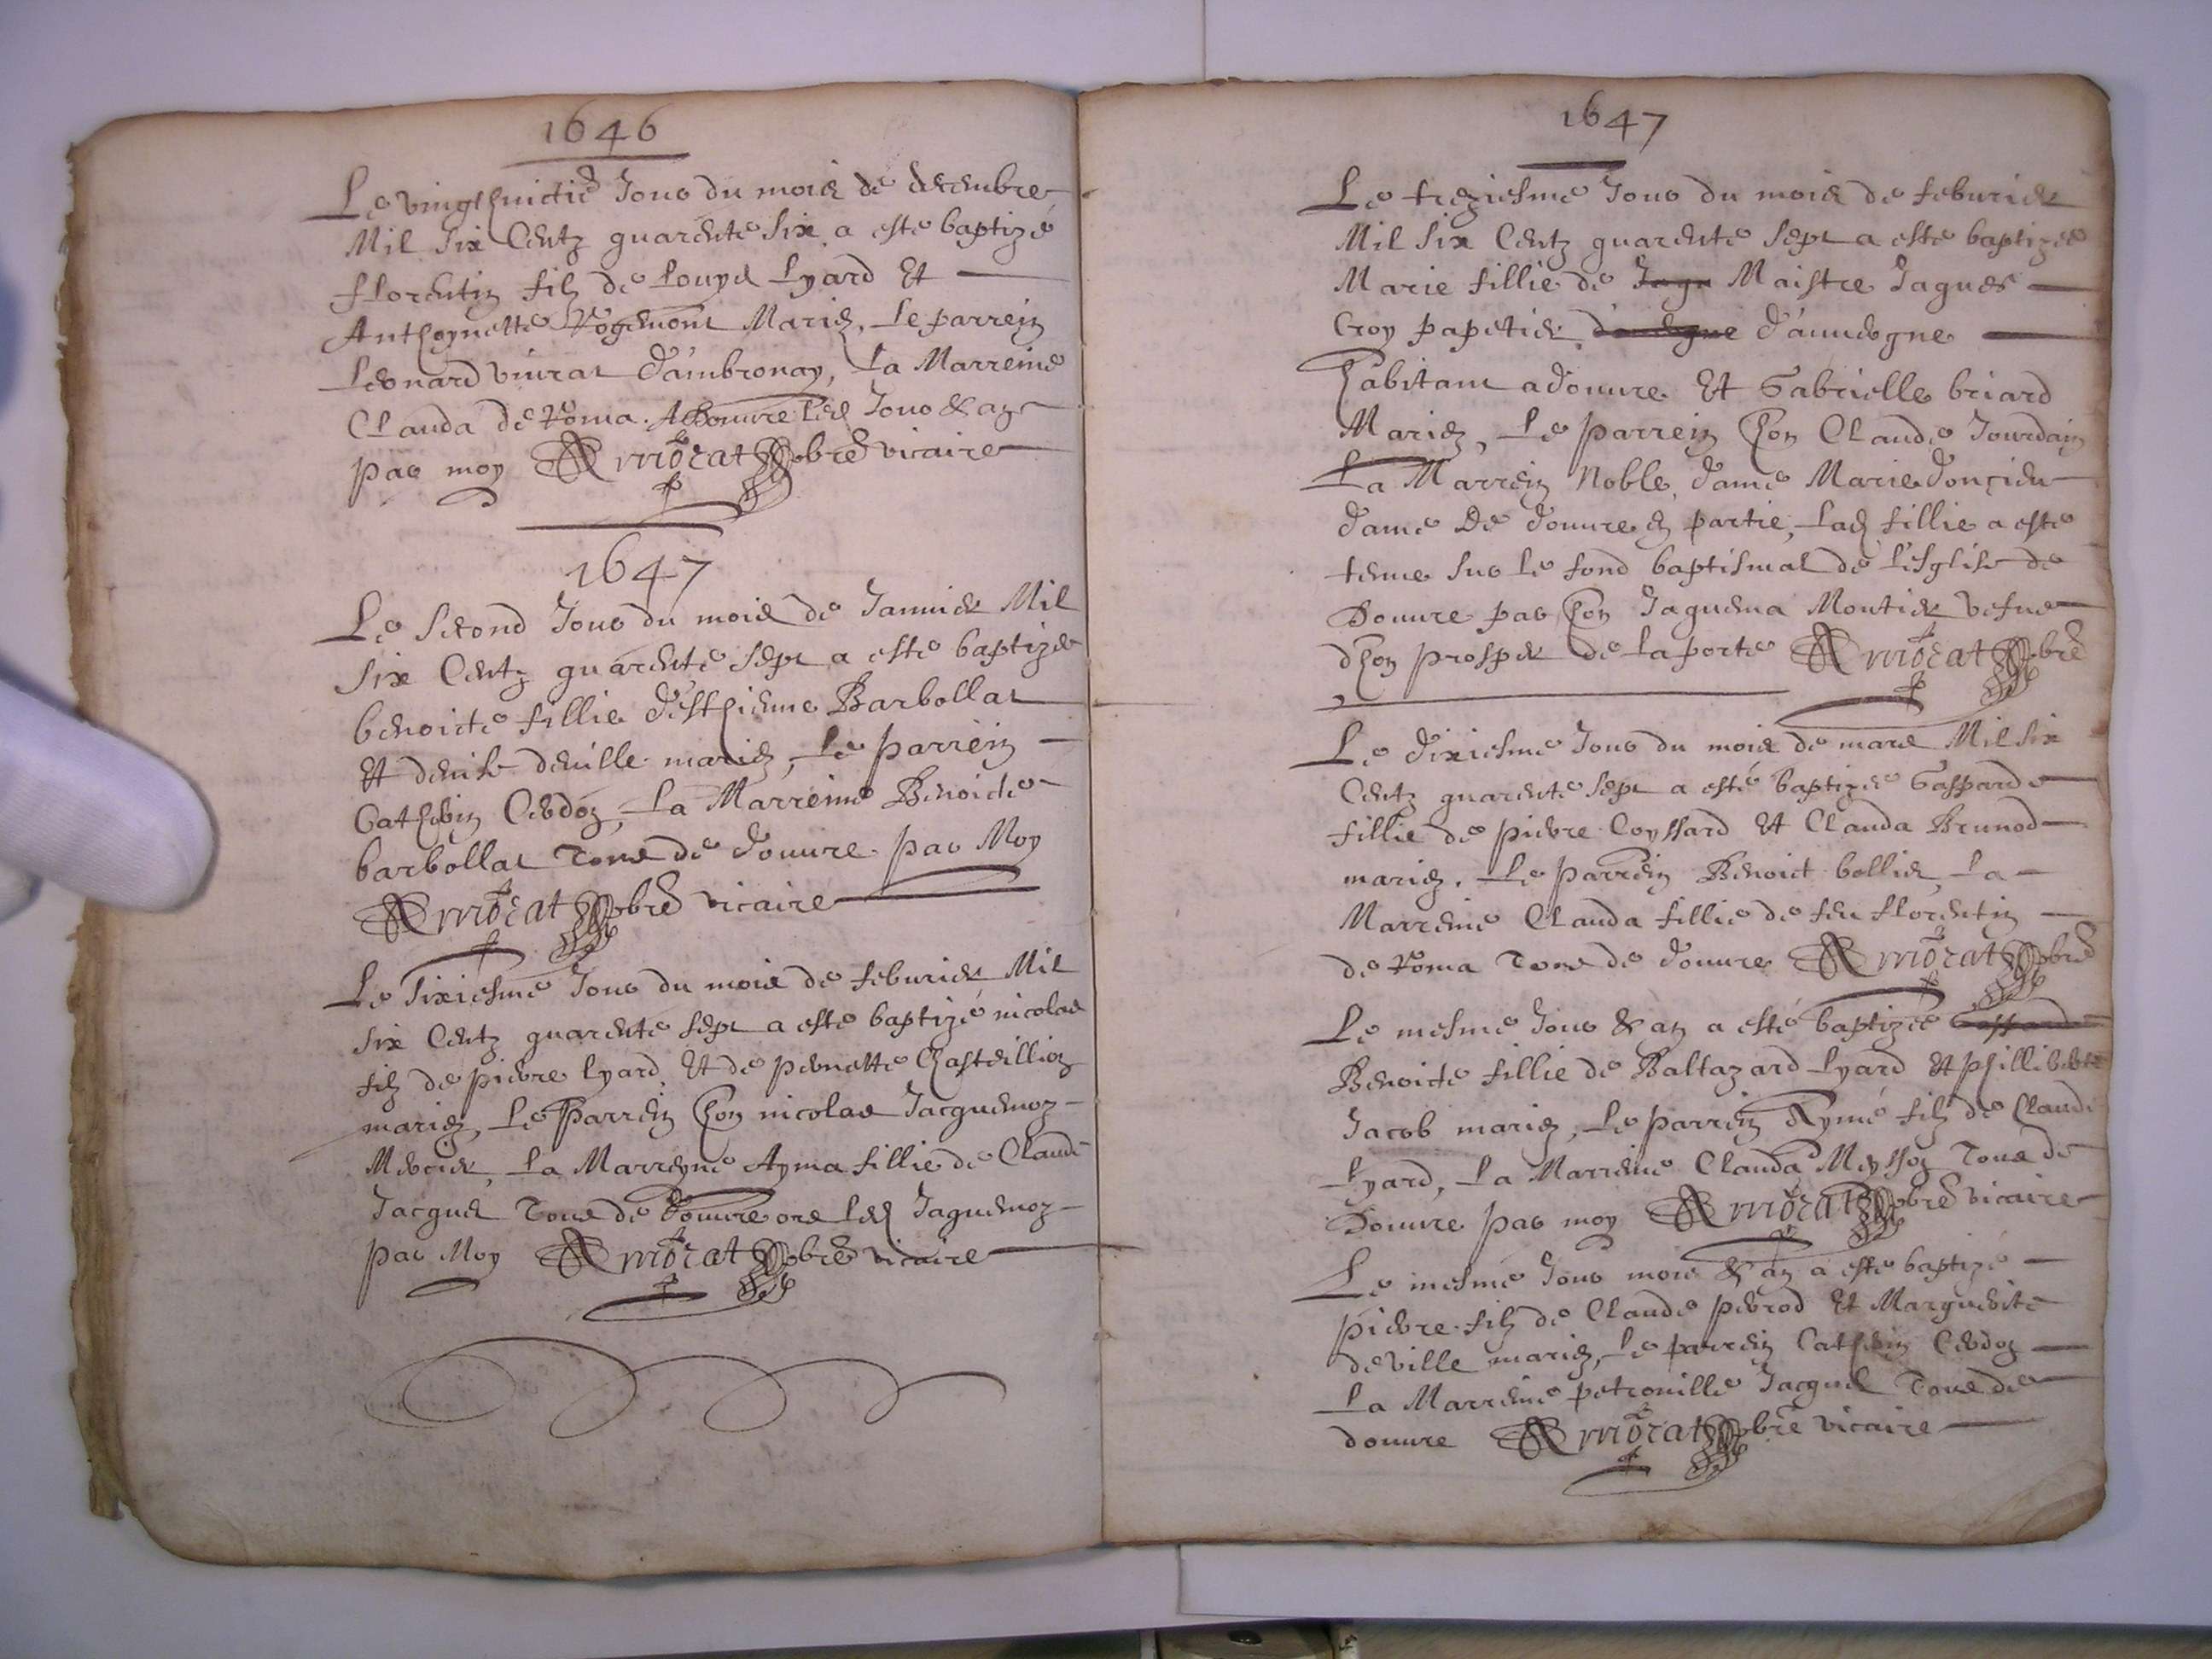 1646
Le vingthuictie Jour du mois de decembre
Mil Six Centz quarente six a este baptizé
fflorentin filz de Louys Lyard Et
Anthoynette Rogemont Mariez, Le parrein
Leonard viurat d'ambronay, La Marreine
Clauda de Roma. A Douure les Jour & an
par moy morat pbre vicaire
1647
Le Second Jour du mois de Januier Mil
Six Centz quarente sept a este baptizee
benoicte fillie d'esthienne Barbollat
Et denise deuille mariez, Le parrein
Catherin Cerdon, La Marreine Benoicte
barbollat Tous de douure par Moy
morat pbre vicaire
Le Sixiesme Jour du mois de feburier Mil
six Centz quarente sept a este baptizé nicolas
filz de pierre lyard Et de pernette Chasteillion
mariez, Le parrein hon nicolas Jacquemoz
Mercier, La Marreyne Ayma fillie de Claude
Jacques Tous de Douure ors led Jaquemoz
par Moy morat pbre vicaire
1647
Le treziesme Jour du mois de feburier
Mil six Centz quarente sept a este baptizee
Marie fillie de Jaqu Maistre Jaques
Croy papetier d'auuergne
habitant a douure Et Gabrielle briard
Mariez, Le parrein hon Claude Jourdain
La Marrein Noble dame Marie donçieu
dame De douure en partie, Lad fillie a este
tenue sur le fond baptismal de l'esglise de
Douure par hon Jaquema Montier vefue
d'hon prosper de la porte morat pbre
Le dixiesme Jour du mois de mars Mil six
Centz quarente sept a esté baptizee Gasparde
fillie de pierre Coyssard Et Clauda Brunod
mariez. Le parrein Benoict bollier, La
Marreine Clauda fillie de feu fflorentin
de Roma Tous de douure morat pbre
Le mesme Jour & an a esté baptizee Gasparde
Benoicte fillie de Baltazard Lyard Et philliberte
Jacob mariez, Le parrein Aymé filz de Claude
Lyard, La Marreine Clauda Meysson Tous de
Douure par moy morat pbre vicaire
Le mesme Jour mois & an a este baptizé
pierre filz de Claude perrod Et Marguerite
deville mariez, Le parrein Catherin Cerdon
La Marreine petronille Jacques Tous de
douure morat pbre vicaire